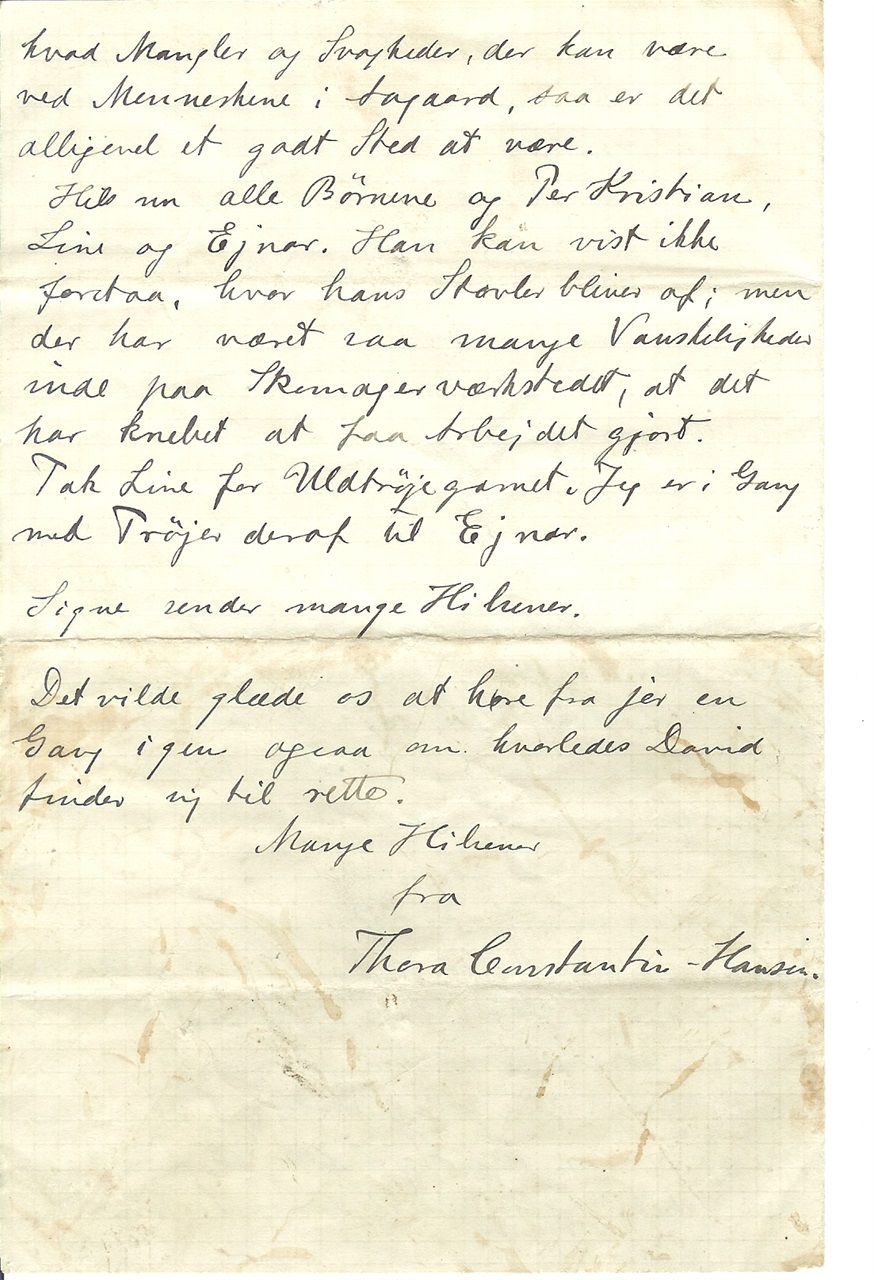 hvad Mangler og Svagheder, der kan være
ved Menneskene i Aagaard, saa er det
alligevel et godt Sted at være.
Hils nu alle Börnene og Per Kristian,
Line og Ejnar. Han kan vist ikke
forstaa, hvor hans Støvler bliver af; men
der har været saa mange Vanskeligheder
inde paa Skomagerværkstedet, at det
har knebet at faa Arbejdet gjort.
Tak Line for Uldtröjegarnet. Jeg er i Gang
med Tröjer deraf til Ejnar.
Signe sender mange Hilsener.
Det vilde glæde os at høre fra jer en
Gang igen ogsaa om hvorledes David
finder sig til rette.
Mange Hilsener
fra
Thora Constantin-Hansen.